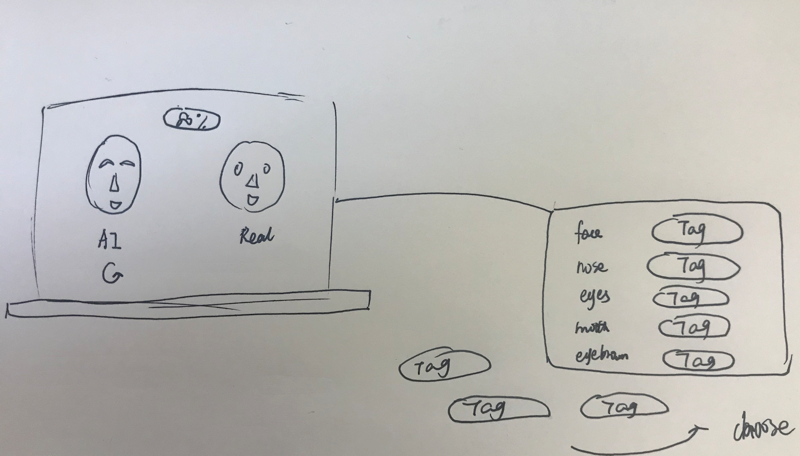 80%
AI
Real
face Tag
nose Tag
eyes Tag
mouth Tag
eyebrown Tag
Tag
Tag
Tag
choose